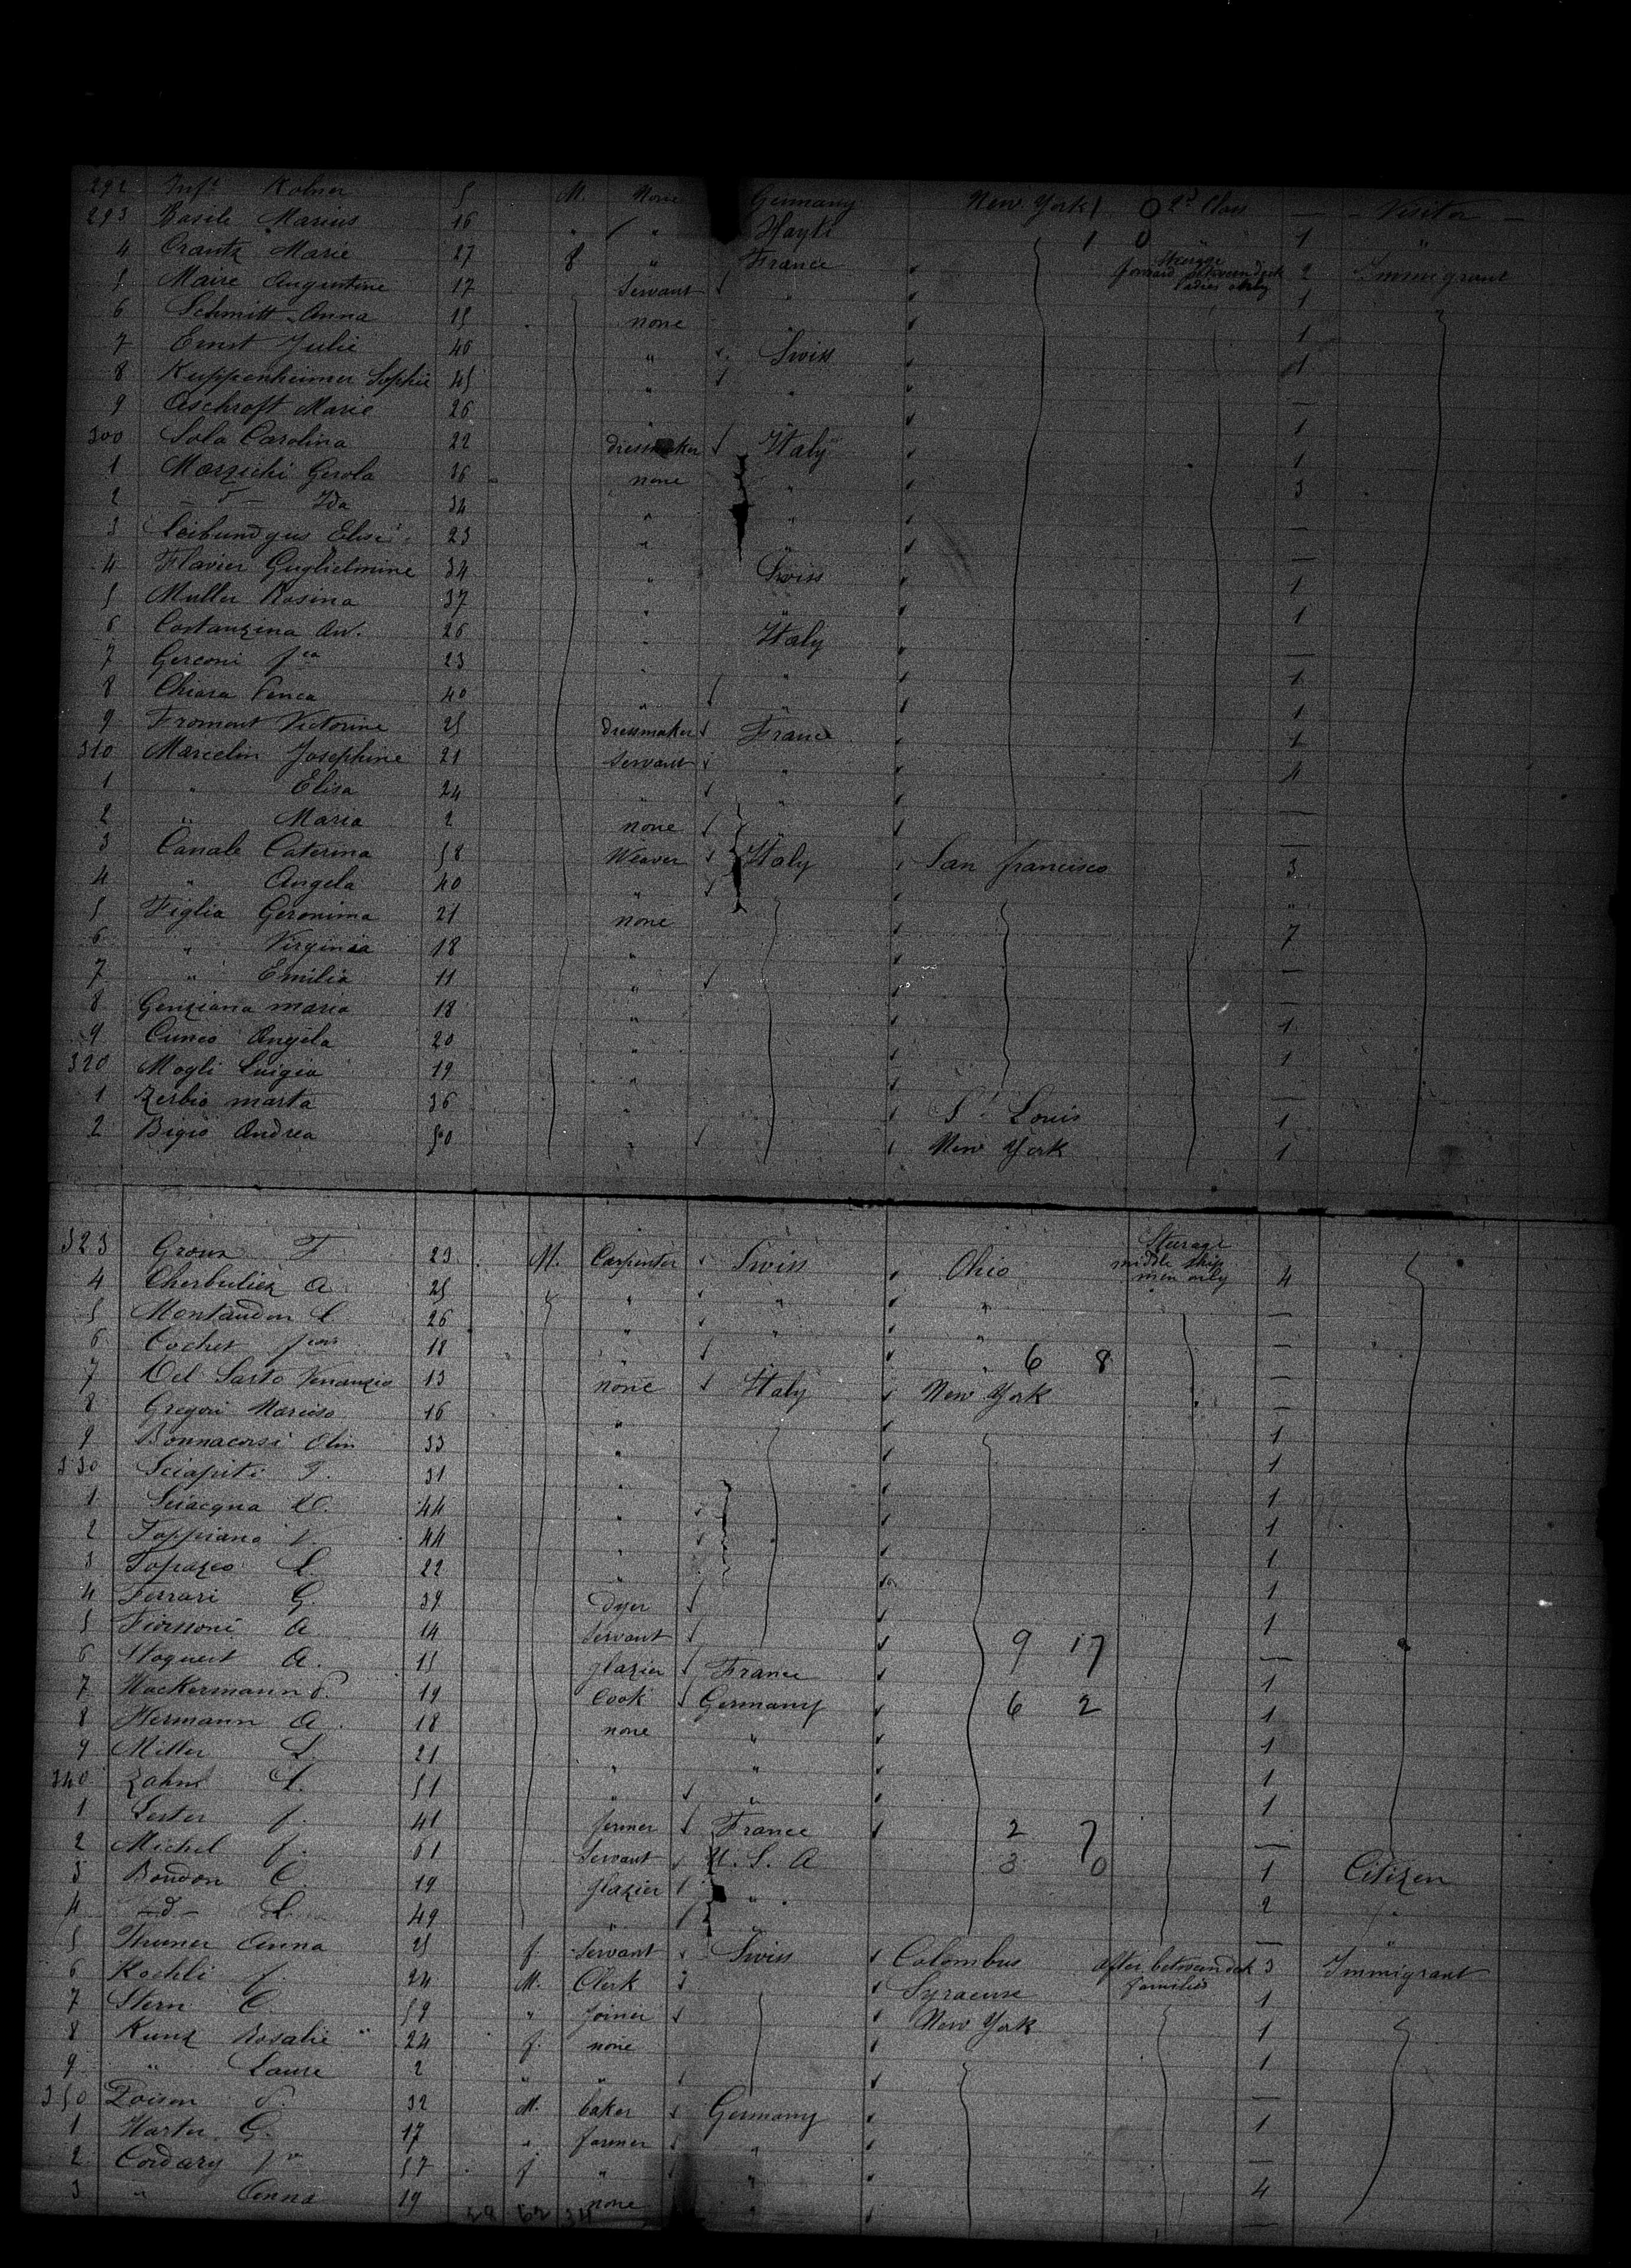 292 Inft Kolner 5 M. None Germany New York 1 0 2d Class — Visitor —
293 Basile Marius 16 " " Hayti 1 0 " 1 "
4 Crantz Marie 27 f " France Steerage forward betweendeck ladies only 2 Immigrant
5 Maire Augustine 17 Servant " 1
6 Schmitt Anna 15 none " 1
7 Ernst Julie 46 " Swiss 1
8 Kuppenheimer Sophie 45 " " —
9 Aschroft Marie 26 " " 1
300 Sola Carolina 22 dressmaker Italy 1
1 Marzichi Gerola 36 none " 3
2 — d — Ida 34 " " —
3 Leibundgus Elise 23 " " —
4 Flavier Guglielmine 34 " Swiss 1
5 Muller Rosina 37 " " 1
6 Costanzina An. 26 " Italy —
7 Gerconi 23 " " 1
8 Chiara 40 " " 1
9 Froment Victorine 25 dressmaker France 1
310 Marcelin Josephine 21 Servant " 4
1 " Elisa 24 " " —
2 " Maria 2 none " —
3 Canale Caterina 58 Weaver Italy San francisco 3
4 " Angela 40 " "
5 Figlia Geronima 21 none 7
6 " Virginia 18 " —
7 " Emilia 11 " —
8 Genziana maria 18 " 1
9 Cuneo Angela 20 " 1
320 Mogli Luigia 19 " —
1 Zerbio marta 36 " St Louis 1
2 Bigio Andrea 50 " New York 1
323 F 23 M. Carpenter Swiss Ohio Steerage middle ship men only 4
4 Cherbuliez A 25 " " " —
5 Montandon C. 26 " " " —
6 Cochet 18 " " 6 8 —
7 Del Sarto Venanzio 13 none Italy New York —
8 Gregori Narciso 16 " 1
9 Bonnacorsi Olin 33 " 1
330 Sciapiti T. 31 " 1
1 Sciacqua D. 44 " 1
2 Toppiano V. 44 " 1
3 Topazeo L. 22 " 1
4 Ferrari G. 39 dyer 1
5 Fiorssoni A 14 Servant 9 17 —
6 Stoquert A. 15 glazier France 1
7 Hackermann P. 19 Cook Germany 6 2 1
8 Hermann A. 18 none " 1
9 Miller L. 21 " " 1
340 Zahn L. 51 " " 1
1 Sester J. 41 farmer France 2 7 —
2 Michel J. 61 Servant U. S. A 3 0 1 Citizen
3 Boudon C. 19 glazier " 2 "
4 — d — L 49 " " — "
5 Thuner Anna 25 f. Servant Swiss Colombus After betweendeck families 3 Immigrant
6 Kochli J. 24 M. Clerk Syracuse 1
7 Stern C. 59 " Joiner New York 1
8 Kunz Rosalie 24 f. none 1
9 " Laure 2 " " —
350 Poison P. 32 M. baker Germany 1
1 Harter G. 17 " farmer " —
2 Cordary 57 f " " 4
3 " Anna 19 none " —